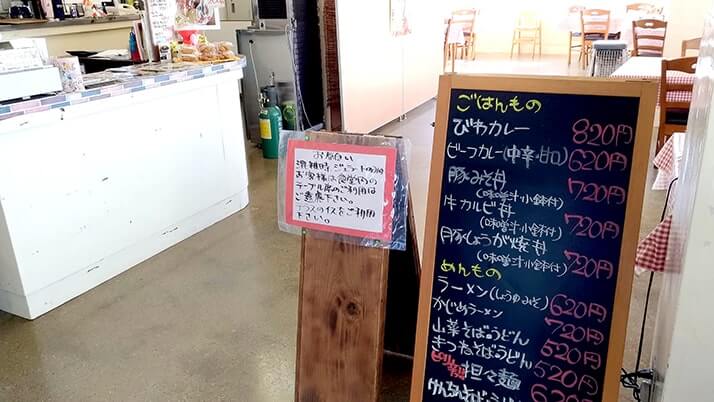 お願い
混雑時ジェラートのみの
お客様は食堂内の
テーブル席のご利用は
ご遠慮下さい。
テラスのイスをご利用
下さい。
ごはんもの
びわカレー 820円
ビーフカレー(中辛・甘口) 620円
豚みそ丼 720円
(味噌汁・小鉢付)
牛カルビ丼 720円
(味噌汁・小鉢付)
豚しょうが焼丼 720円
(味噌汁・小鉢付)
めんもの
ラーメン(しょうゆ・みそ) 620円
かじめラーメン 720円
山菜そば・うどん 520円
きつねそば・うどん 520円
ピリ辛 担々麺 620円
けんちんそば・うどん